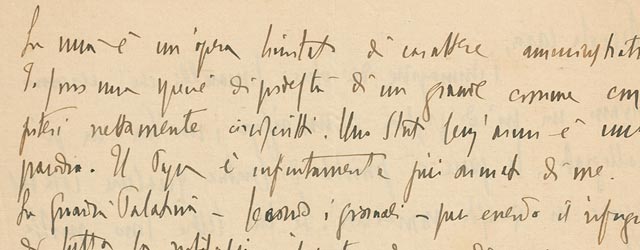 La mia è un'opera limitata di carattere amministrat
Io sono una specie di podestà di un grande comune con
poteri nettamente circoscritti. Uno Stato senz'armi è una
parodia. Il Papa è infinitamente più armato di me.
La Guardia Palatina - secondo i giornali - pur essendo il rifugio
di tutta la